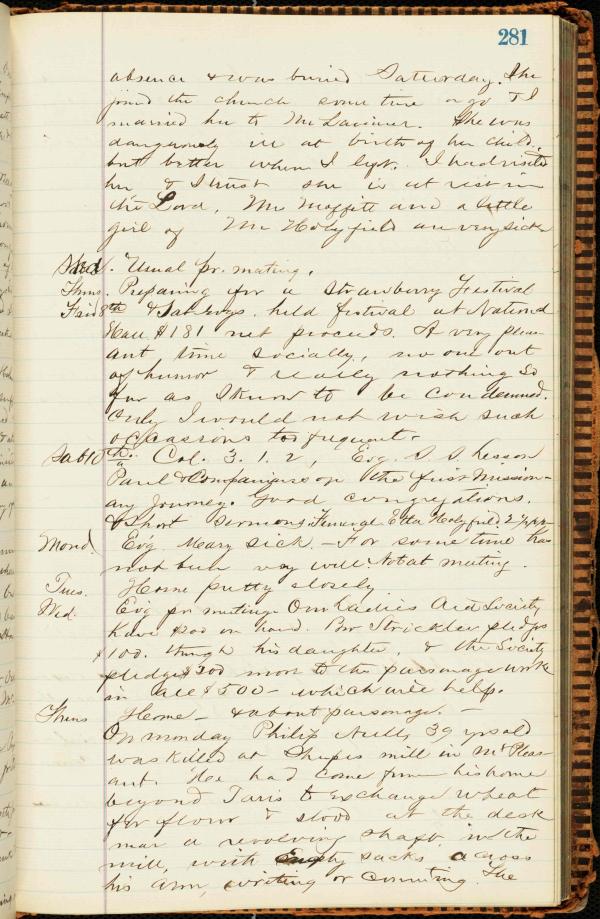 281
absence & was buried Saturday. She
joined the church some time ago & I
married her to Mr Lavimer. She was
dangerously ill at birth of her child,
but better when I left. I had visited
her & I trust she is at rest in
the Lord. Mr Moffitt and a little
girl of Mr Holyfield are very sick
Wed. Usual pr. meeting.
Thurs. Preparing for a Strawberry Festival
Frid 8th & Sat evgs. held festival at National
Hall $181 net proceeds. A very pleas-
ant time socially, no one out
of humor & really nothing so
far as I know to be condemned.
Only I would not wish such
occassions too frequent.
Sab 10th. " Col. 3. 1. 2, Evg. S. S. Lesson
Paul & Companions on the first Mission-
ary Journey. Good congregations.
& Short Sermons. Funeral Etta Holyfield. 2 p.m.
Mond. Evg. Mary sick. - For some time has
not been very well. Not at meeting.
Tues. Home pretty closely
Wed. Evg pr meeting. Our Ladies Aid Society
have $200 on hand. Bro Strickler pledges
$100. through his daughter, & the Society
pledges $200 more to the parsonage work
in all $500 - which will help.
Thurs Home - & about parsonage. -
On monday Philip Nulls, 39 yrs old
was killed at Shupes mill in Mt Pleas-
ant. He had come from his home
beyond Tarrs to exchange wheat
for flour & stood at the desk
near a revolving shaft, in the
mill, with empty sacks across
his arm, writing or counting. The